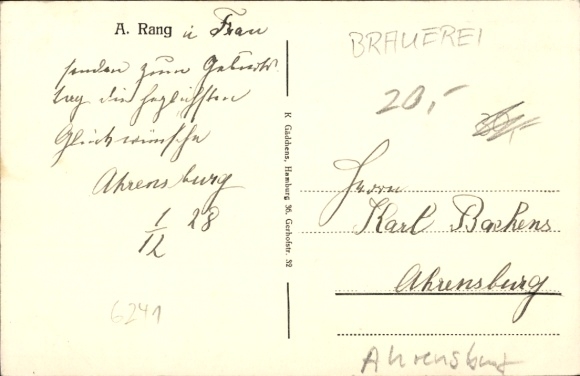 A. Rang u Frau
senden zum Geburts
tag die herzlichsten
Glückwünsche
Ahrensburg
1/12 28
6241
K Gädchens, Hamburg 36, Gerhofstr. 32
BRAUEREI
20,-
Herrn
Karl Backens
Ahrensburg
Ahrensburg